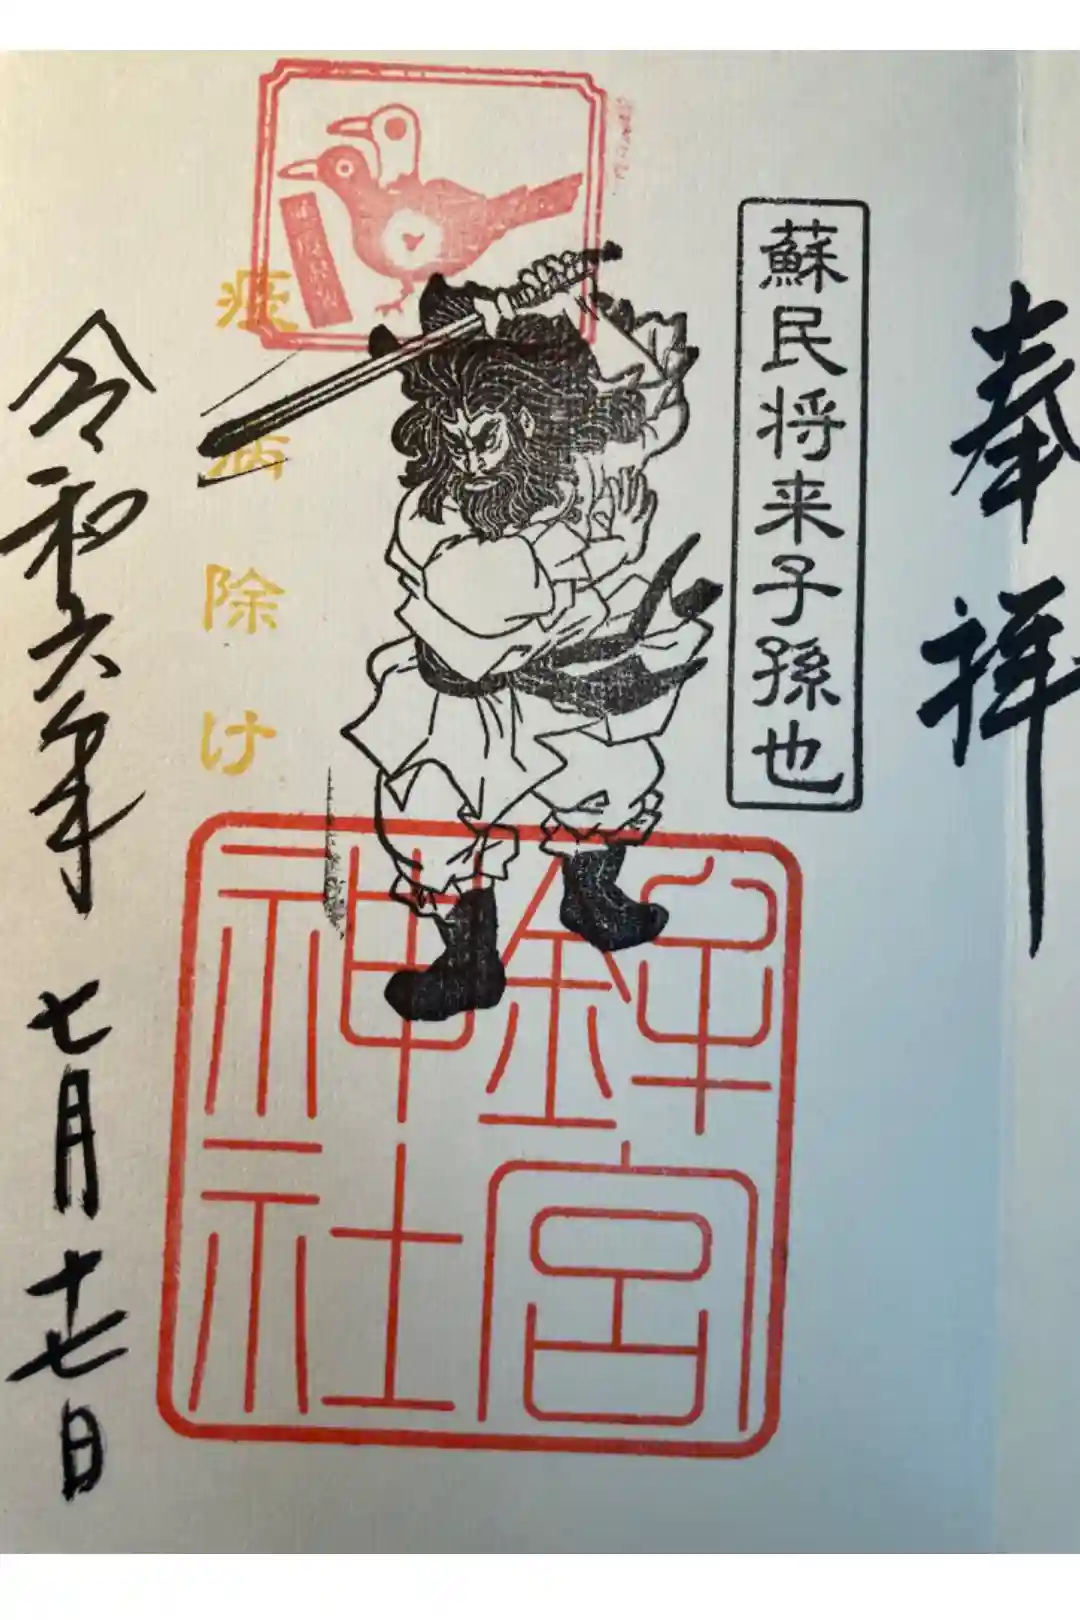 奉拝
蘇民将来子孫也
疫病除け
鉾宮
神社
令和六年七月十七日